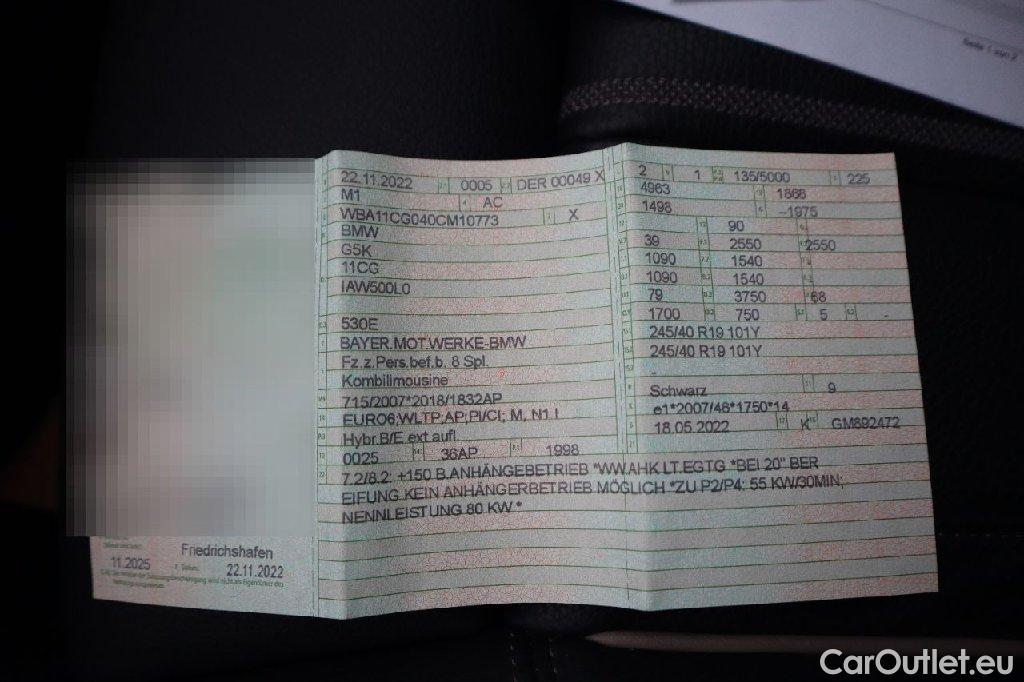 Seite 1 von 2
22.11.2022 0005 DER 00049 X
M1 AC
WBA11CG040CM10773 X
BMW
G5K
11CG
IAW500L0
530E
BAYER.MOT.WERKE-BMW
Fz.z.Pers.bef.b. 8 Spl.
Kombilimousine
715/2007*2018/1832AP
EURO6;WLTP;AP;PI/CI; M, N1 I
Hybr.B/E ext.aufl.
0025 36AP 1998
2 1 135/5000 225
4963 1868
1498 –1975
90
39 2550 2550
1090 1540
1090 1540
79 3750 68
1700 750 5 -
245/40 R19 101Y
245/40 R19 101Y
-
Schwarz 9
e1*2007/46*1750*14
18.05.2022 K GM892472
7.2/8.2: +150 B.ANHÄNGEBETRIEB *WW.AHK LT.EGTG *BEI 20" BER
EIFUNG KEIN ANHÄNGERBETRIEB MÖGLICH *ZU P2/P4: 55 KW/30MIN;
NENNLEISTUNG 80 KW.*
Friedrichshafen
11.2025 22.11.2022
CarOutlet.eu